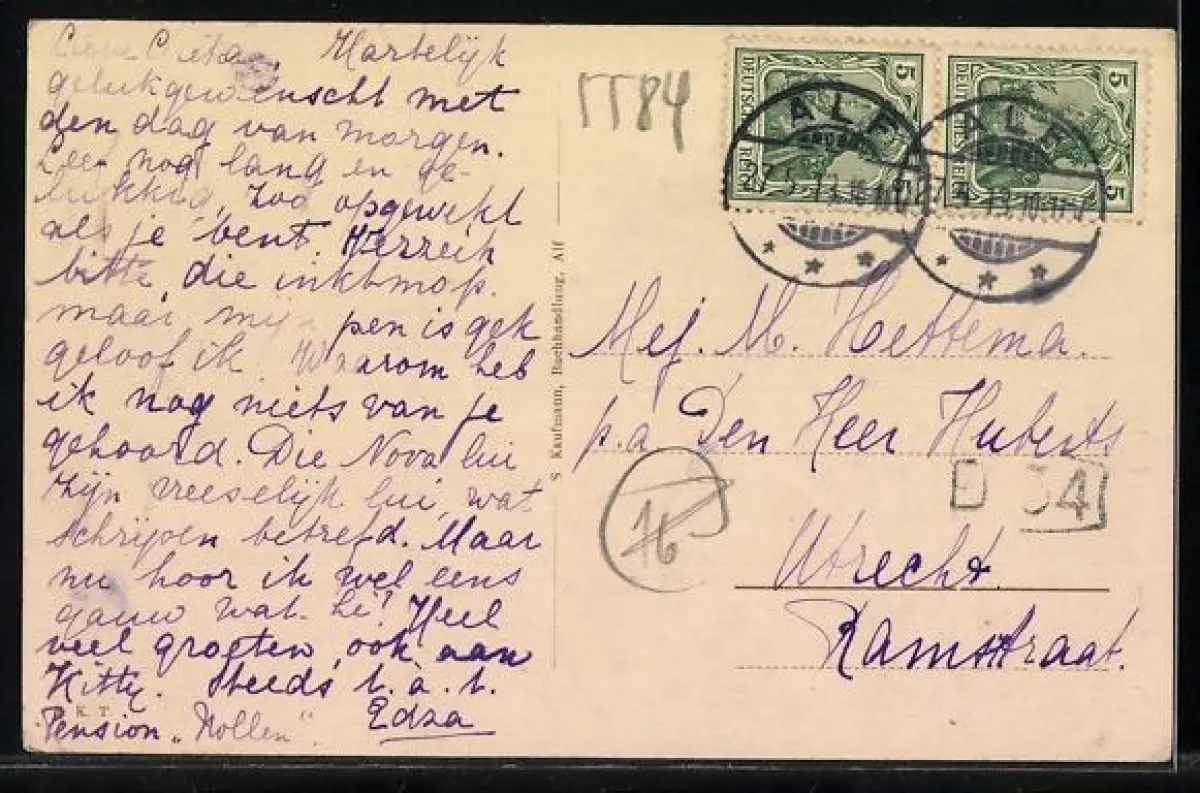 Hartelijk
gelukgewenscht met
den dag van morgen.
Leer nog lang en ge-
lukkig, zoo opgewekt
als je bent. Herzeih
bitte, die inktmop.
maar mijn pen is gek
geloof ik. Waarom heb
ik nog niets van je
gehoord. Die Nova lui
zijn vreeselijk lui, wat
schrijven betrefd. Maar
nu hoor ik wel eens
gauw wat. hè! Heel
veel groeten, ook aan
Kitty. Steeds t. a. t.
Edza
K. T.
Pension „Nollen".
S Kaufmann, Buchhandlung, Alf
TT84
DEUTSCHES REICH
5
5
DEUTSCHES REICH
5
5
ALF
ALF
Mej. M. Hettema.
p.a Den Heer Huberts
16
34
Utrecht.
Ramstraat.